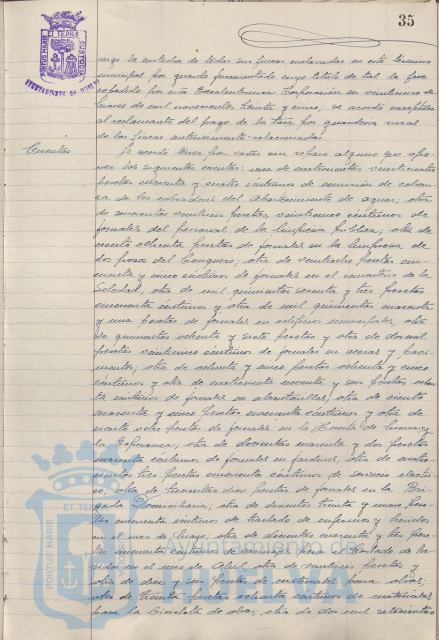 35
PORTUS MARIS ET TERRAE CUSTODIA
AYUNTAMIENTO DE HUELVA
cargo la custodia de todas sus fincas enclavadas en este término
municipal por guarda juramentado cuyo título de tal le fué
expedido por esta Excelentísima Corporación en veintinueve de
marzo de mil novecientos treinta y cinco, se acordó exceptuar
al reclamante del pago de la tasa por guardería rural
de las fincas anteriormente relacionadas.
Cuentas
Se acordó pasar por votos sin reparo alguno que apro-
bar las siguientes cuentas: una de cuatrocientas veinticuatro
pesetas cuarenta y cuatro céntimos de comisión de cobran-
za de los cobradores del Abastecimiento de aguas, otra
de setecientas veintiseis pesetas, veinticinco céntimos de
jornales del personal de la limpieza pública; otra de
ciento ochenta pesetas de jornales en la limpieza de
dos pozos del Conquero; otra de veintiocho pesetas cin-
cuenta y cinco céntimos de jornales en el cementerio de la
Soledad, otra de mil quinientas sesenta y tres pesetas
cincuenta céntimos y otra de mil quinientas cuarenta
y una pesetas de jornales en edificios municipales, otra
de quinientas ochenta y siete pesetas y otra de dos mil
pesetas veinticinco céntimos de jornales en aceras y pavi-
mentos; otra de ochenta y cinco pesetas ochenta y cinco
céntimos y otra de cuatrocientas noventa y seis pesetas ochen-
ta céntimos de jornales en alcantarillas, otra de ciento
cuarenta y cinco pesetas cincuenta céntimos y otra de
ciento ocho pesetas de jornales en la Huerta de
la Esperanza; otra de doscientas cuarenta y dos pesetas
cincuenta céntimos de jornales en jardines, otra de cuatro-
cientas tres pesetas cincuenta céntimos de servicio eléctri-
co, otra de trescientas diez pesetas de jornales en la Bri-
gada Sanitaria, otra de doscientas treinta y cinco pese-
tas cincuenta céntimos de traslado de enfermos y heridos
en el mes de Mayo; otra de doscientas cuarenta y tres pese-
tas cincuenta céntimos de carruajes para el traslado de he-
ridos en el mes de Abril, otra de veintiseis pesetas y
otra de diez y seis pesetas de materiales para obras;
otra de treinta pesetas ochenta céntimos de materiales
para la de obras, otra de dos mil setecientas
PORTUS MARIS ET TERRAE
Ayuntamiento de